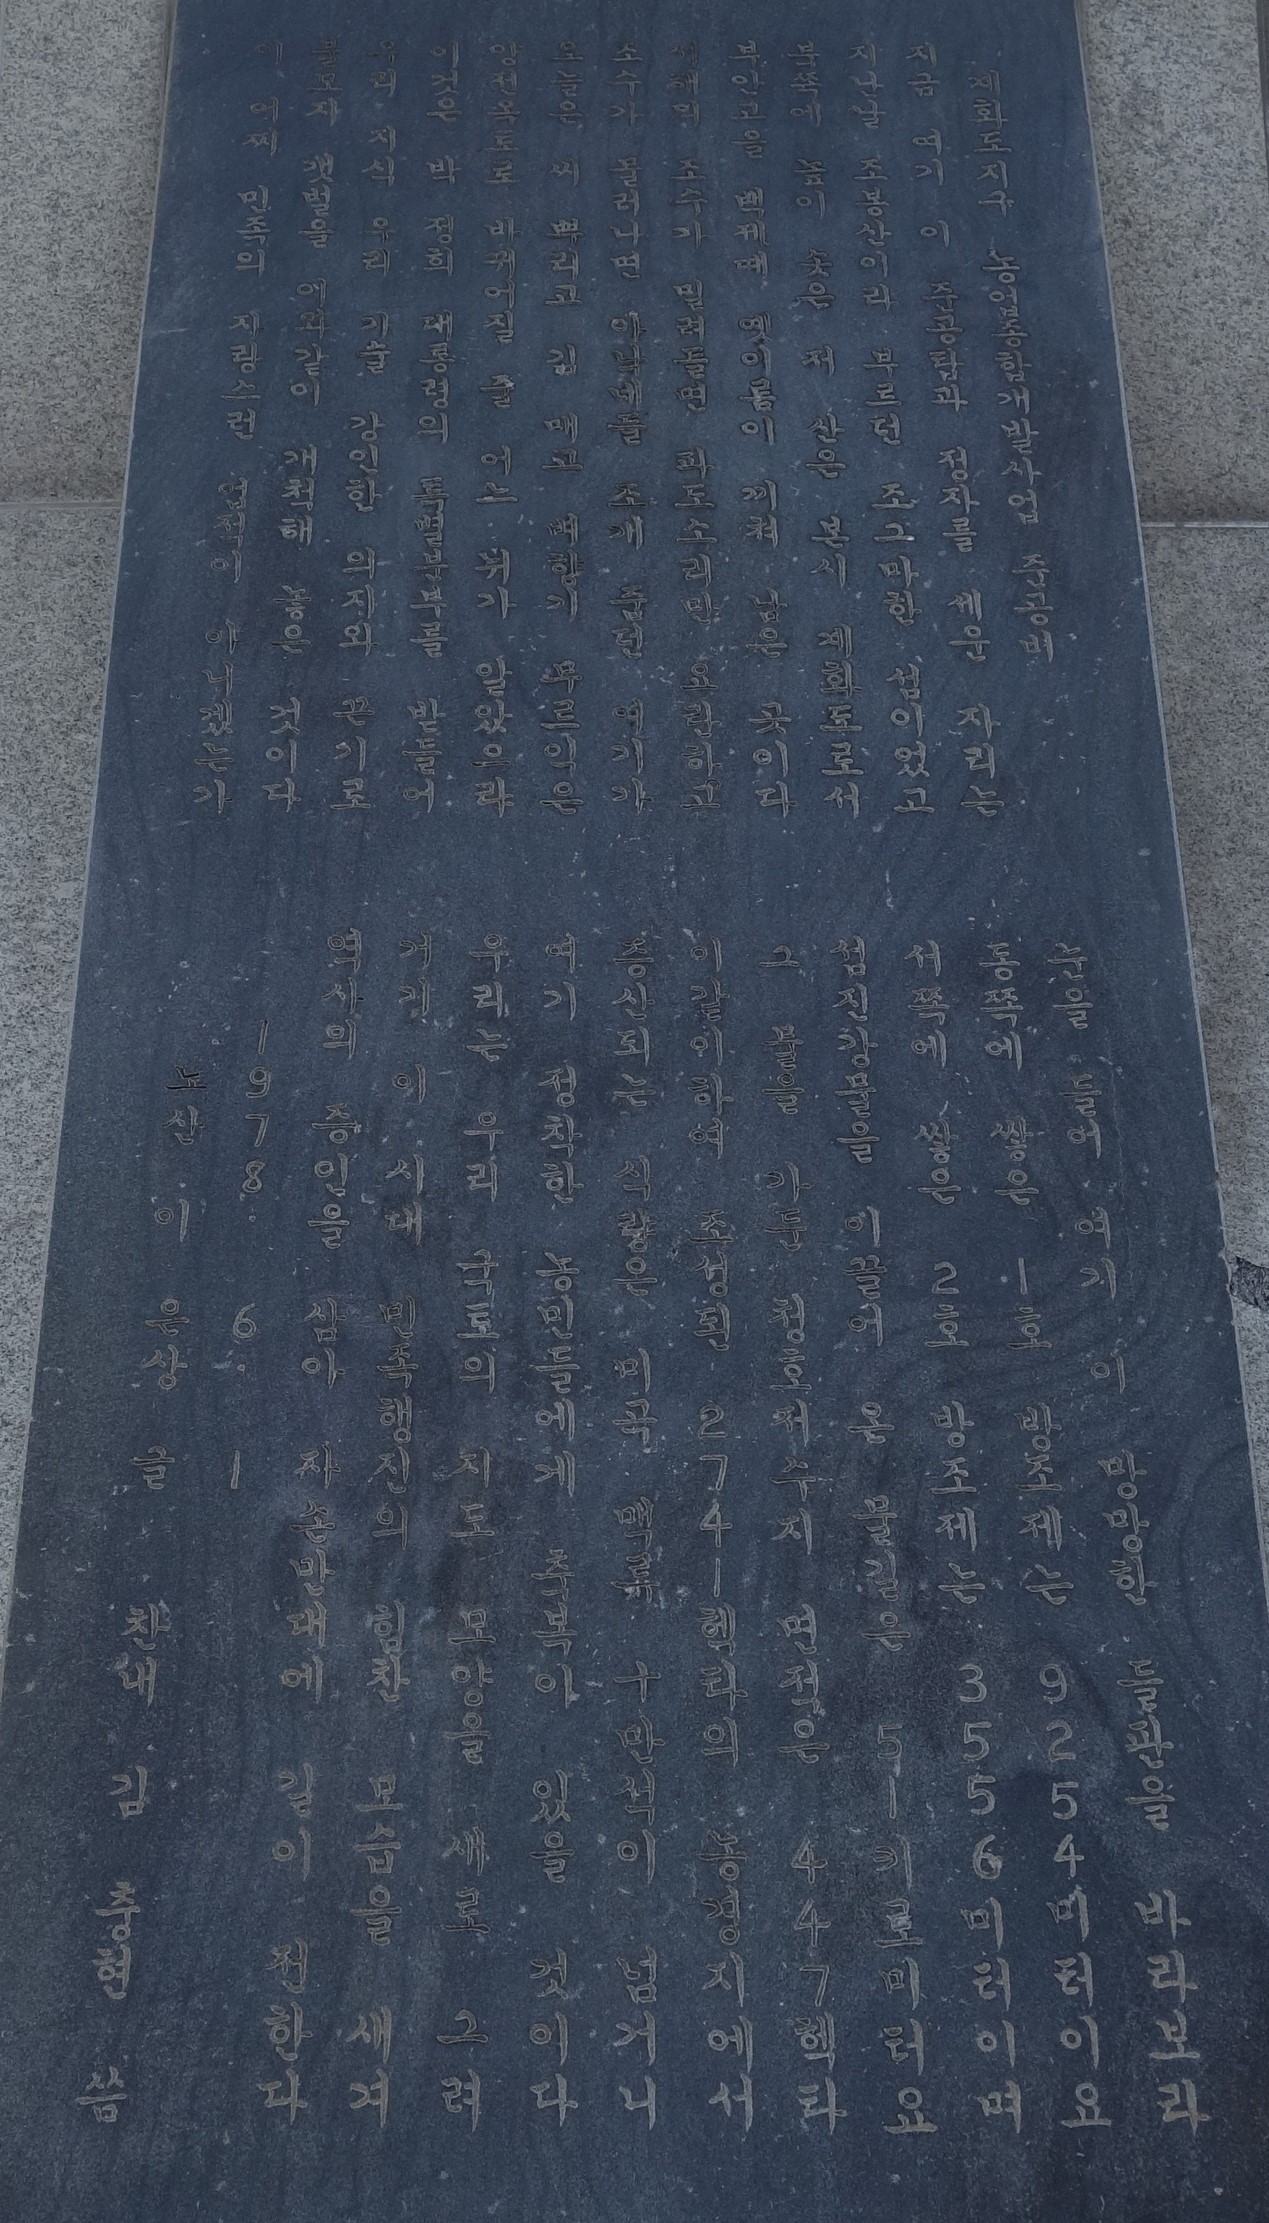 계화도지구 농업종합개발사업 준공비
지금 여기 이 준공탑과 정자를 세운 자리는
지난날 조봉산이라 부르던 조그마한 섬이었고
북쪽에 높이 솟은 저 산은 본시 계화도로서
부안고을 백제때 옛이름이 끼쳐 남은 곳이다
서해의 조수가 밀려들면 파도소리만 요란하고
조수가 물러나면 아낙네들 조개 줍던 여기가
오늘은 씨 뿌리고 김 매고 벼향기 무르익은
양전옥토로 바뀌어질 줄 어느 뉘가 알았으랴
이것은 박 정희 대통령의 특별분부를 받들어
우리 지식 우리 기술 강인한 의지와 끈기로
불모지 갯벌을 이와같이 개척해 놓은 것이다
이 어찌 민족의 자랑스런 업적이 아니겠는가
눈을 들어 여기 이 망망한 들판을 바라보라
동쪽에 쌓은 1호 방조제는 9254미터이요
서쪽에 쌓은 2호 방조제는 3556미터이며
섬진강물을 이끌어 온 물길은 51키로미터요
그 물을 가둔 청호저수지 면적은 447헥타
이같이하여 조성된 2741헥타의 농경지에서
증산되는 식량은 미곡 맥곡 十만석이 넘거니
여기 정착한 농민들에게 축복이 있을 것이다
우리는 우리 국토의 지도 모양을 새로 그려
이 시대 민족행진의 힘찬 모습을 새겨
역사의 증인을 삼아 자손만대에 길이 전한다
1978. 6. 1
노산 이 은상 글 김 충현 씀